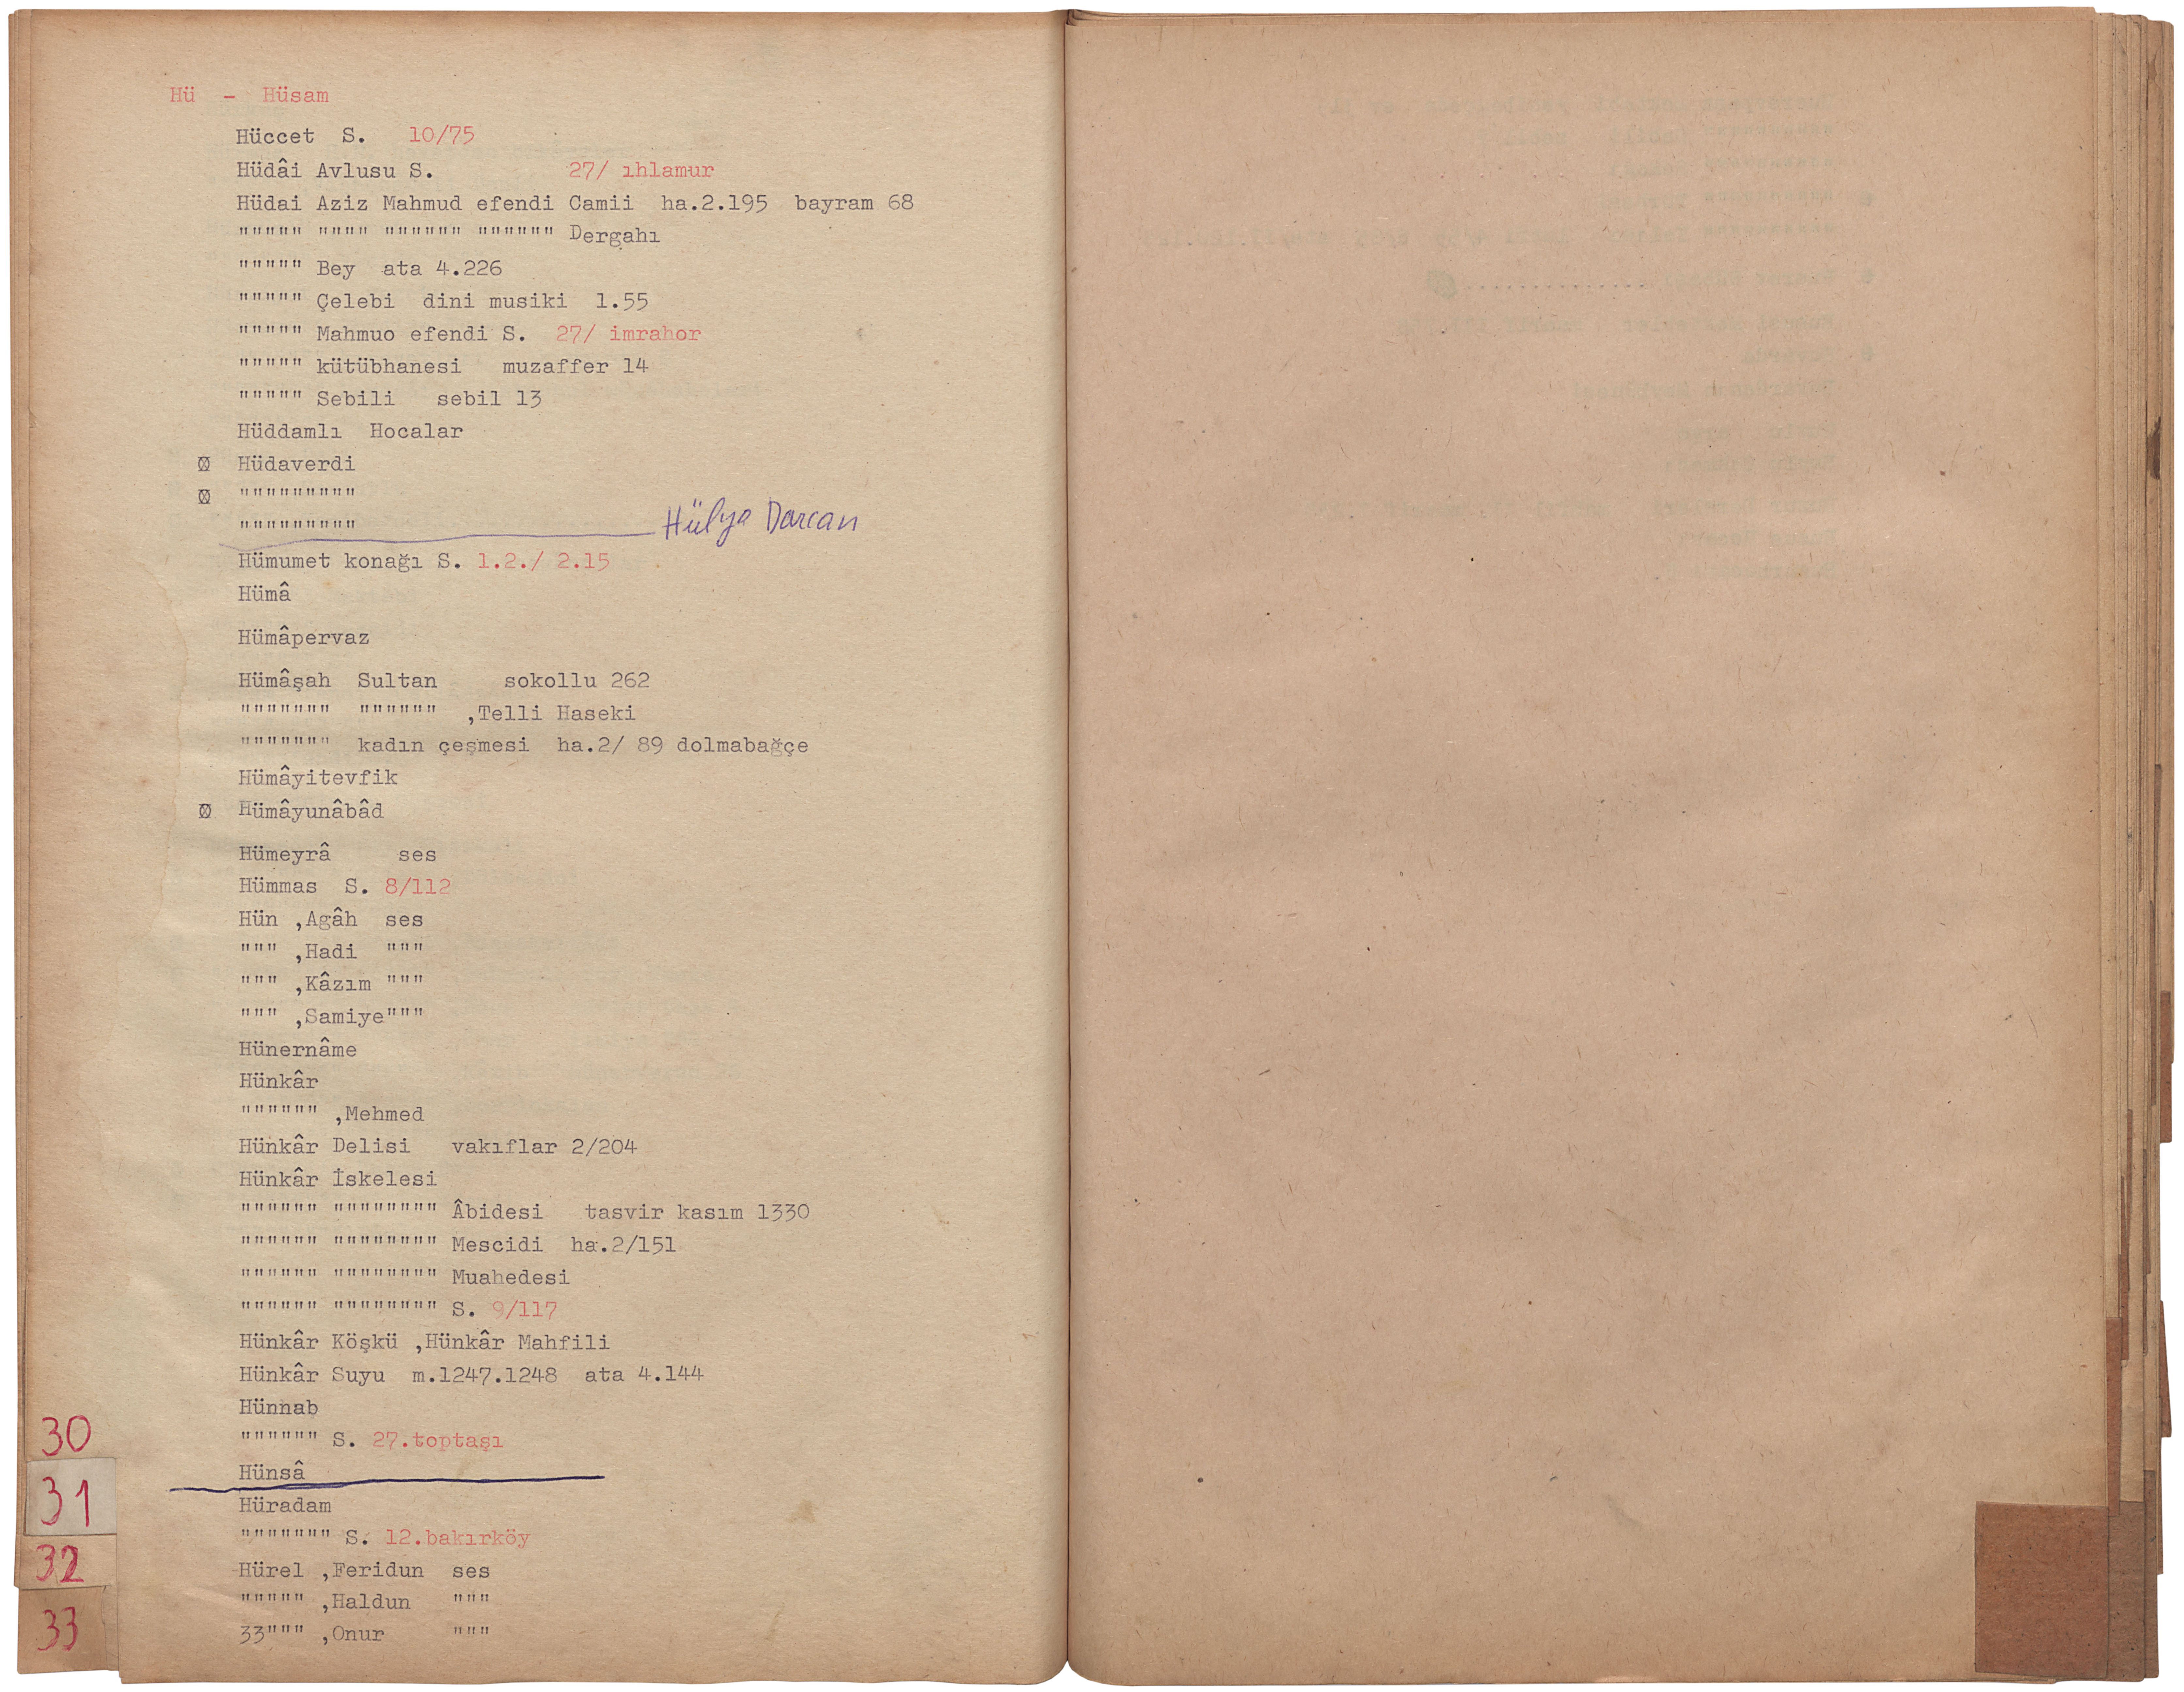 Hü - Hüsam
Hüccet S. 10/75
Hüdâi Avlusu S. 27/ ıhlamur
Hüdai Aziz Mahmud efendi Camii ha.2.195 bayram 68
""""" """" """""" """""" Dergahı
""""" Bey ata 4.226
""""" Çelebi dini musiki 1.55
""""" Mahmuo efendi S. 27/ imrahor
""""" kütübhanesi muzaffer 14
""""" Sebili sebil 13
Hüddamlı Hocalar
Hüdaverdi
"""""""""
"""""""""
Hülya Darcan
Hümumet konağı S. 1.2./ 2.15
Hümâ
Hümâpervaz
Hümâşah Sultan sokollu 262
""""""" """""" ,Telli Haseki
""""""" kadın çeşmesi ha.2/ 89 dolmabağçe
Hümâyitevfik
Hümâyunâbâd
Hümeyrâ ses
Hümmas S. 8/112
Hün ,Agâh ses
""" ,Hadi """
""" ,Kâzım """
""" ,Samiye"""
Hünernâme
Hünkâr
"""""" ,Mehmed
Hünkâr Delisi vakıflar 2/204
Hünkâr İskelesi
"""""" """""""" Âbidesi tasvir kasım 1330
"""""" """""""" Mescidi ha.2/151
"""""" """""""" Muahedesi
"""""" """""""" S. 9/117
Hünkâr Köşkü ,Hünkâr Mahfili
Hünkâr Suyu m.1247.1248 ata 4.144
Hünnab
"""""" S. 27.toptaşı
Hünsâ
Hüradam
""""""" S. 12.bakırköy
Hürel ,Feridun ses
""""" ,Haldun """
33""" ,Onur """
30
31
32
33